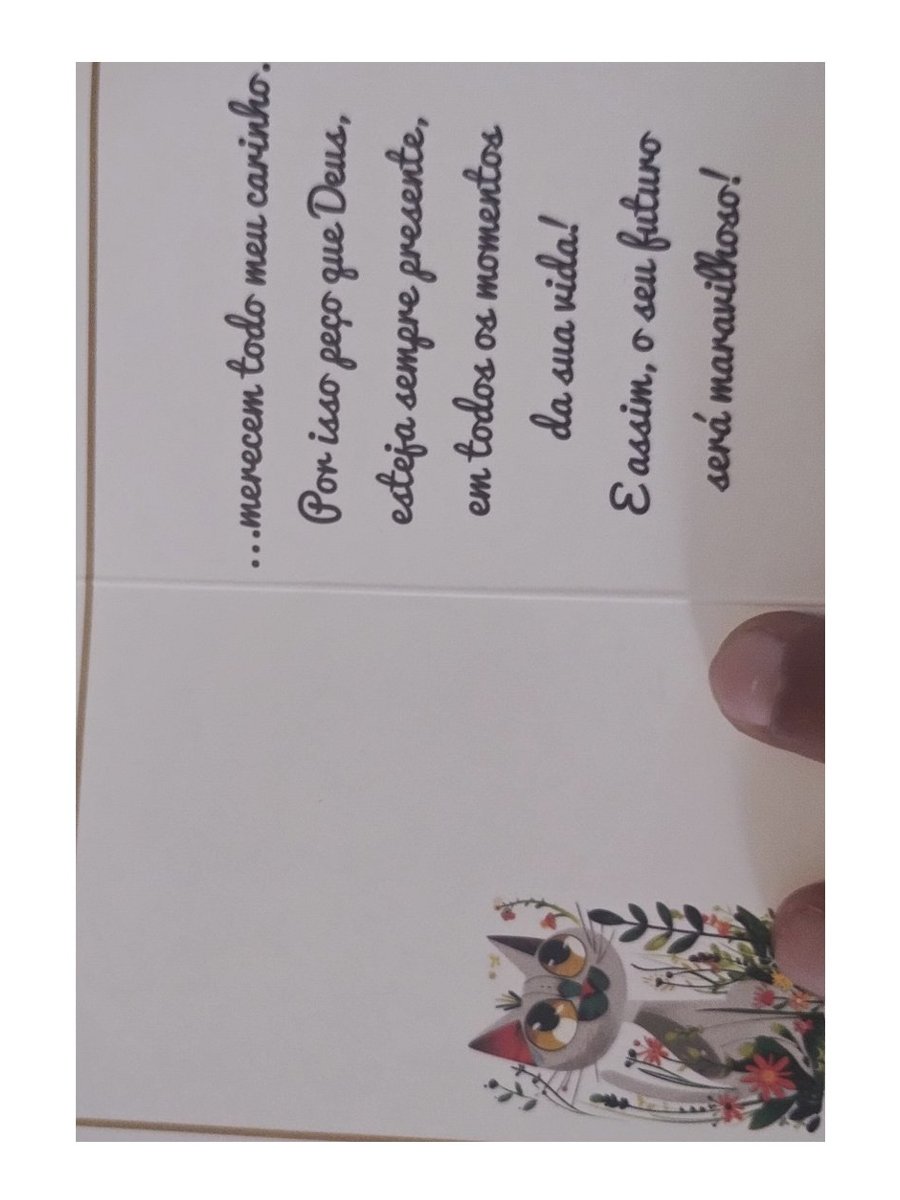 ...merecem todo meu carinho.
Por isso peço que Deus,
esteja sempre presente,
em todos os momentos
da sua vida!
E assim, o seu futuro
será maravilhoso!